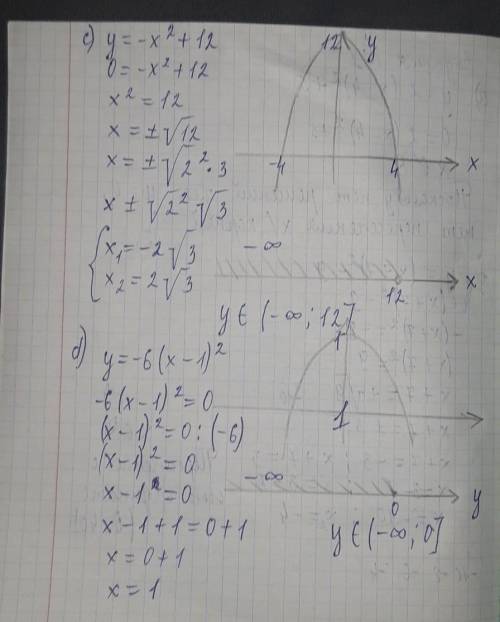 c) y = -x² + 12
0 = -x² + 12
x² = 12
x = ±√12
x = ±√2²·3
x ± √2² √3
{ x₁ = -2√3
x₂ = 2√3
12 y
-4 4 x
-∞
12 x
y ∈ (-∞; 12]
d) y = -6(x-1)²
-6(x-1)² = 0
(x-1)² = 0 : (-6)
(x-1)² = 0
x - 1 = 0
x - 1 + 1 = 0 + 1
x = 0 + 1
x = 1
1
1
-∞
0 y
y ∈ (-∞; 0]